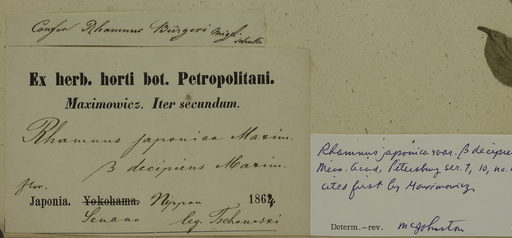 Confer Rhamnus Bürgeri Miq.
Ex herb. horti bot. Petropolitani.
Maximowicz. Iter secundum.
Rhamnus japonica Maxim.
β decipiens Maxim.
flor.
Japonia. Yokohama. Nippon 1864.
leg. Tschonoski
Rhamnus japonica var. β decipie
Mem. Acad. Petersburg Ser. 7, 10, no.
cited first by Maximowicz
Determ.—rev. McJohnston